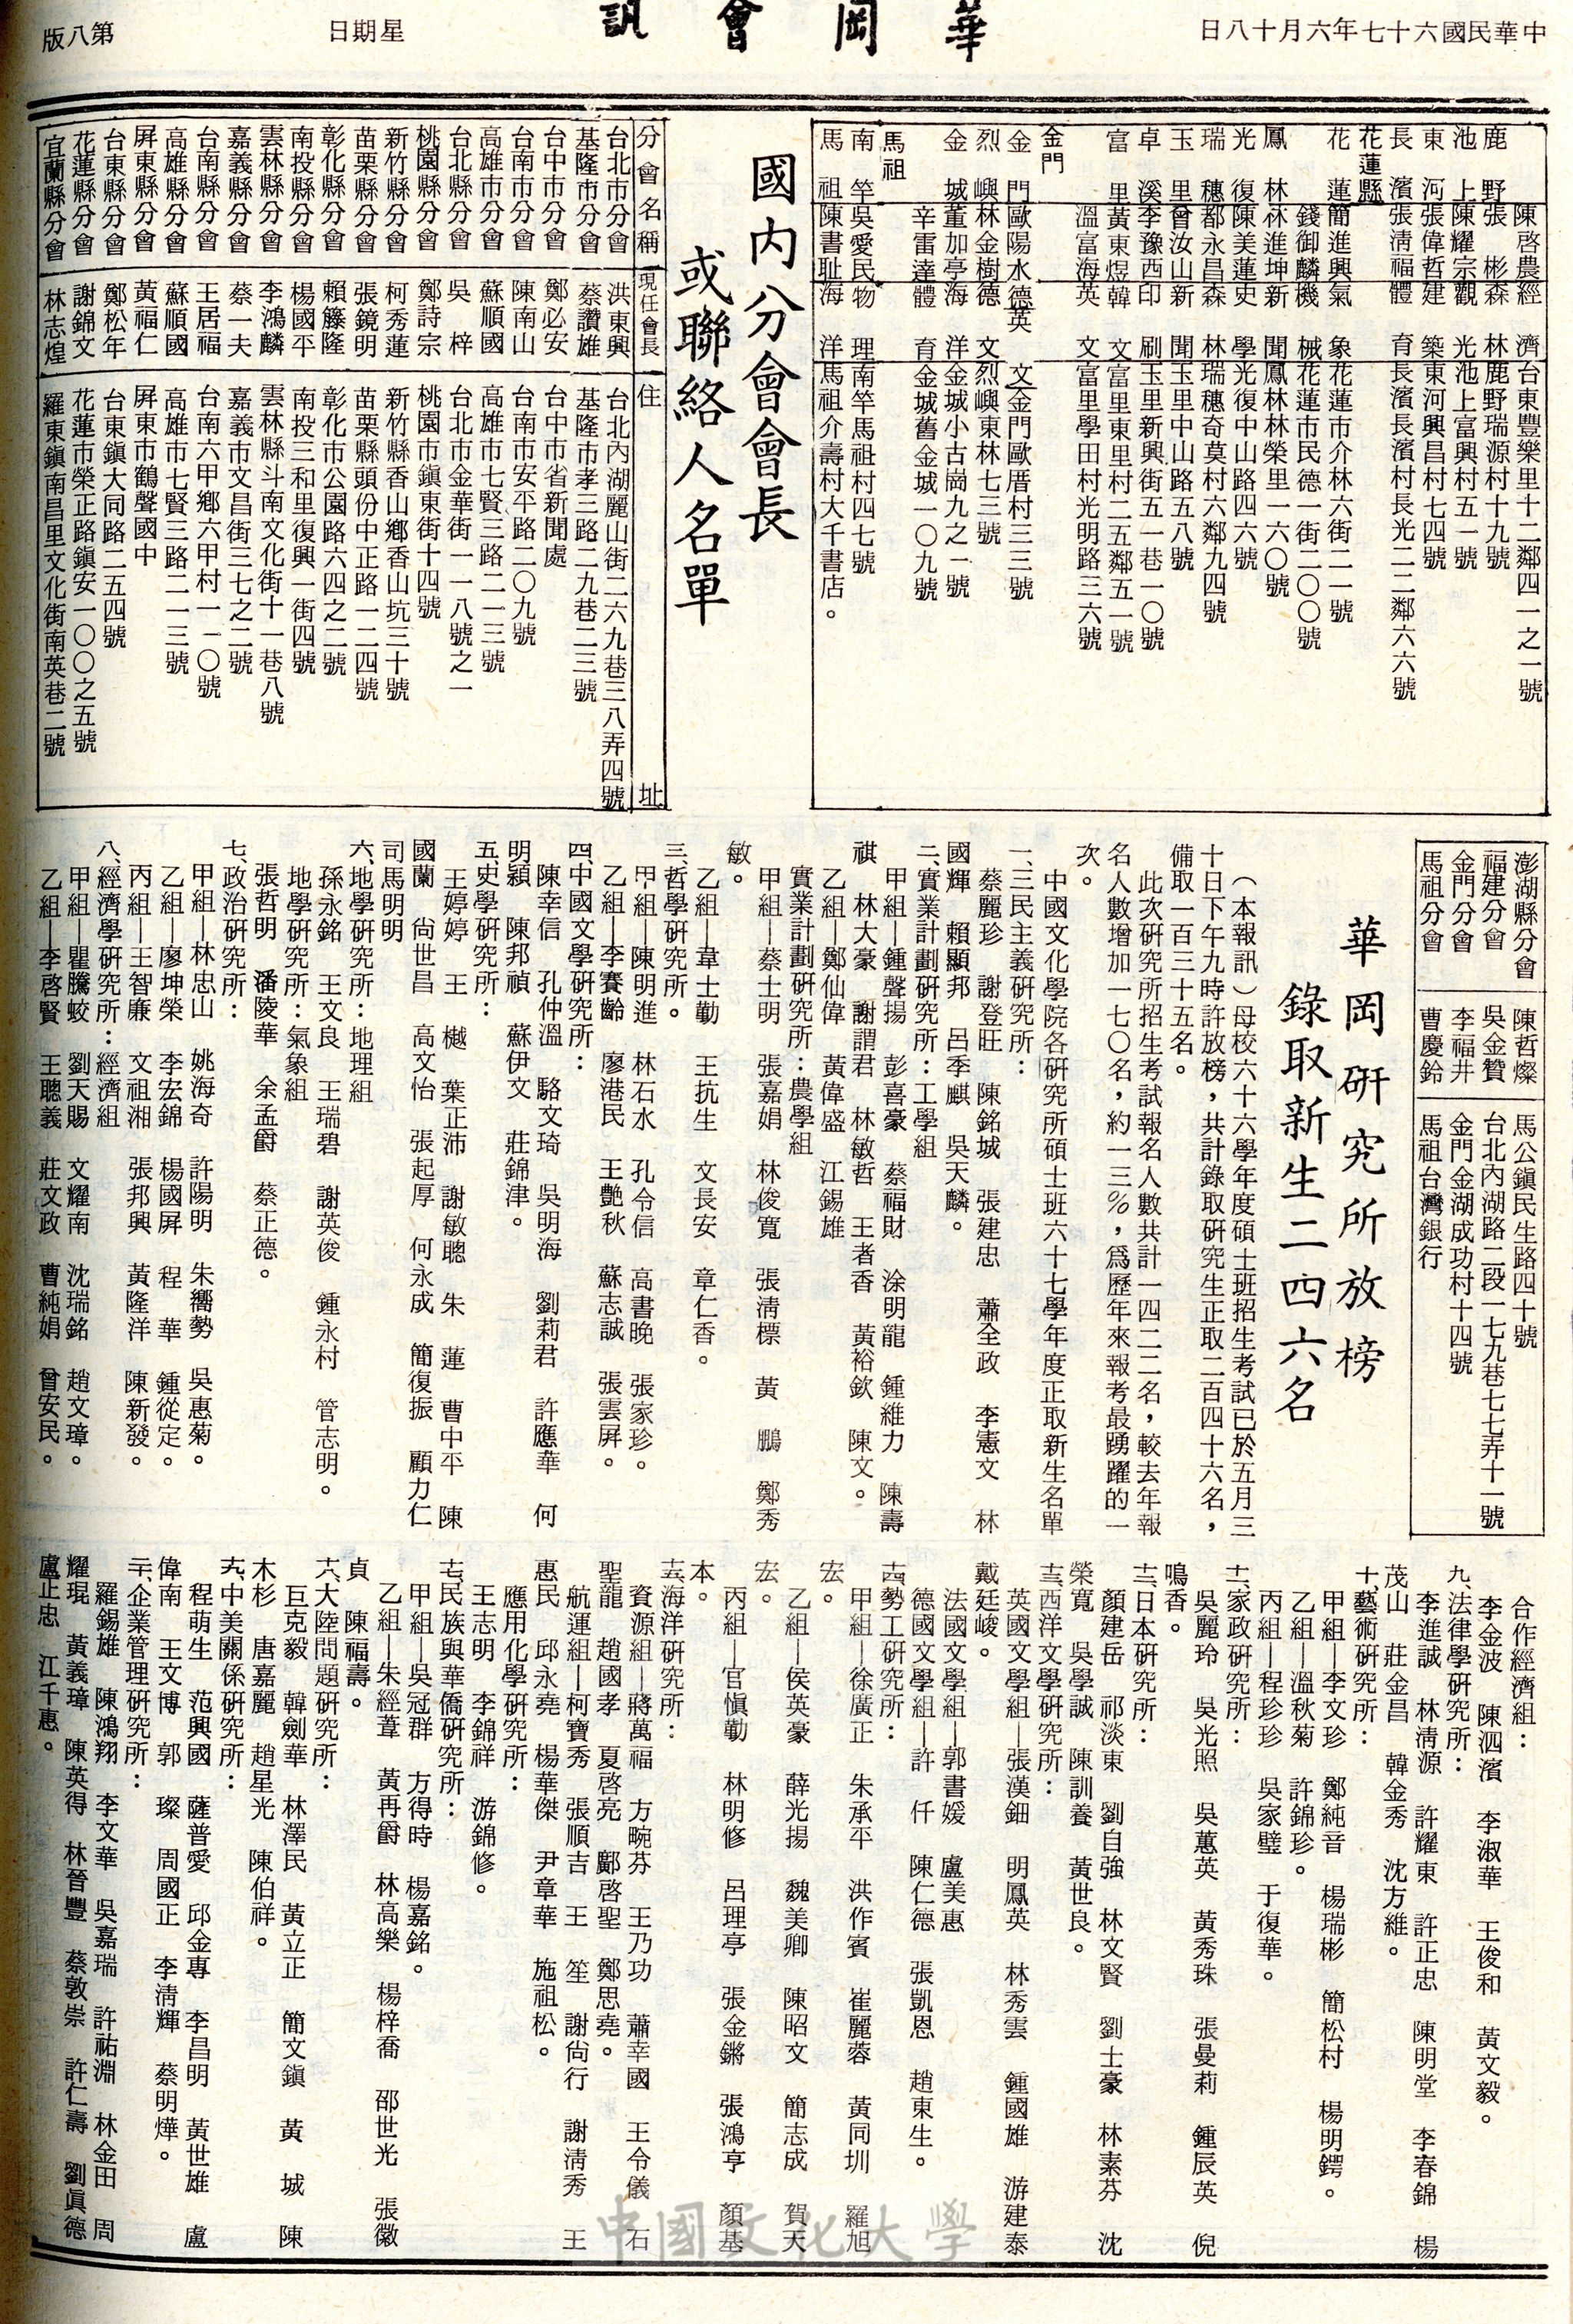 中華民國六十七年六月十八日
華岡會訊
星期日
第八版
陳啓農經濟台東豐樂里十二鄰四一之一號
鹿野張彬森林鹿野瑞源村十九號
池上陳耀宗觀光池上富興村五一號
東河張偉哲建築東河興昌村七四號
長濱張淸福體育長濱長濱村長光二二鄰六六號
花蓮縣
花蓮簡進興氣象花蓮市介林六街二一號
錢御麟機械花蓮市民德一街二〇〇號
鳳林林進坤新聞鳳林林榮里一六〇號
光復陳美蓮史學光復中山路四六號
瑞穗都永昌森林瑞穗奇莫村六鄰九四號
玉里曾汝山新聞玉里中山路五八號
卓溪李豫西印刷玉里新興街五一巷一〇號
富里黃東煜韓文富里東里村二五鄰五一號
溫富海英文富里學田村光明路三六號
金門
金門歐陽水德英文金門歐厝村三三號
烈嶼林金樹德文烈嶼東林七三號
金城董加亭海洋金城小古崗九之一號
辛雷達體育金城舊金城一〇九號
馬祖
南竿吳愛民物理南竿馬祖村四七號
馬祖陳書耻海洋馬祖介壽村大千書店。
國內分會會長
或聯絡人名單
分會名稱 現任會長 住址
台北市分會 洪東興 台北內湖麗山街二六九巷三八弄四號
基隆市分會 蔡讚雄 基隆市孝三路二九巷二三號
台中市分會 鄭必安 台中市省新聞處
台南市分會 陳南山 台南市安平路二〇九號
高雄市分會 蘇順國 高雄市七賢三路二一三號
台北縣分會 吳梓 台北市金華街一一八號之一
桃園縣分會 鄭詩宗 桃園市鎭東街十四號
新竹縣分會 柯秀蓮 新竹縣香山鄕香山坑三十號
苗栗縣分會 張鏡明 苗栗縣頭份中正路一二四號
彰化縣分會 賴籐隆 彰化市公園路六四之二號
南投縣分會 楊國平 南投三和里復興一街四號
雲林縣分會 李鴻麟 雲林縣斗南文化街十一巷八號
嘉義縣分會 蔡一夫 嘉義市文昌街三七之二號
台南縣分會 王居福 台南六甲鄕六甲村一一〇號
高雄縣分會 蘇順國 高雄市七賢三路二一三號
屛東縣分會 黃福仁 屛東市鶴聲國中
台東縣分會 鄭松年 台東鎭大同路二五四號
花蓮縣分會 謝錦文 花蓮市榮正路鎭安一〇〇之五號
宜蘭縣分會 林志煌 羅東鎭南昌里文化街南英巷二號
澎湖縣分會 陳哲燦 馬公鎭民生路四十號
福建分會 吳金贊 台北內湖路二段一七九巷七七弄十一號
金門分會 李福井 金門金湖成功村十四號
馬祖分會 曹慶鈴 馬祖台灣銀行
華岡硏究所放榜
錄取新生二四六名
（本報訊）母校六十六學年度碩士班招生考試已於五月三
十日下午九時許放榜，共計錄取硏究生正取二百四十六名，
備取一百三十五名。
此次硏究所招生考試報名人數共計一四二二名，較去年報
名人數增加一七〇名，約一三％，爲歷年來報考最踴躍的一
次。
中國文化學院各硏究所碩士班六十七學年度正取新生名單
一、三民主義硏究所：
蔡麗珍 謝登旺 陳銘城 張建忠 蕭全政 李憲文 林
國輝 賴顯邦 呂季麒 吳天麟。
二、實業計劃硏究所：工學組
甲組—鍾聲揚 彭喜豪 蔡福財 涂明龍 鍾維力 陳壽
祺 林大豪 謝謂君 林敏哲 王者香 黃裕欽 陳文。
乙組—鄭仙偉 黃偉盛 江錫雄
實業計劃硏究所：農學組
甲組—蔡士明 張嘉娟 林俊寬 張淸標 黃鵬 鄭秀
敏。
乙組—韋士勤 王抗生 文長安 章仁香。
三、哲學硏究所。
甲組—陳明進 林石水 孔令信 高書晚 張家珍。
乙組—李賽齡 廖港民 王艷秋 蘇志誠 張雲屛。
四、中國文學硏究所：
陳幸信 孔仲溫 駱文琦 吳明海 劉莉君 許應華 何
明潁 陳邦禎 蘇伊文 莊錦津。
五、史學硏究所：
王婷婷 王樾 葉正沛 謝敏聰 朱蓮 曹中平 陳
國蘭 尙世昌 高文怡 張起厚 何永成 簡復振 顧力仁
司馬明明
六、地學硏究所：地理組
孫永銘 王文良 王瑞碧 謝英俊 鍾永村 管志明。
地學硏究所：氣象組
張哲明 潘陵華 余孟爵 蔡正德。
七、政治硏究所：
甲組—林忠山 姚海奇 許陽明 朱嚮勢 吳惠菊。
乙組—廖坤榮 李宏錦 楊國屛 程華 鍾從定。
丙組—王智廉 文祖湘 張邦興 黃隆洋 陳新發。
八、經濟學硏究所：經濟組
甲組—瞿騰蛟 劉天賜 文耀南 沈瑞銘 趙文璋。
乙組—李啓賢 王聰義 莊文政 曹純娟 曾安民。
合作經濟組：
李金波 陳泗濱 李淑華 王俊和 黃文毅。
九、法律學硏究所：
李進誠 林淸源 許耀東 許正忠 陳明堂 李春錦 楊
茂山 莊金昌 韓金秀 沈方維。
十、藝術硏究所：
甲組—李文珍 鄭純音 楊瑞彬 簡松村 楊明鍔。
乙組—溫秋菊 許錦珍。
丙組—程珍珍 吳家璧 于復華。
十一、家政硏究所：
吳麗玲 吳光照 吳蕙英 黃秀珠 張曼莉 鍾辰英 倪
鳴香。
十二、日本硏究所：
顏建岳 祁淡東 劉自強 林文賢 劉士豪 林素芬 沈
榮寬 吳學誠 陳訓養 黃世良。
十三、西洋文學硏究所：
英國文學組—張漢鈿 明鳳英 林秀雲 鍾國雄 游建泰
戴廷峻。
法國文學組—郭書媛 盧美惠
德國文學組—許仟 陳仁德 張凱恩 趙東生。
十四、勢工硏究所：
甲組—徐廣正 朱承平 洪作賓 崔麗蓉 黃同圳 羅旭
宏。
乙組—侯英豪 薛光揚 魏美卿 陳昭文 簡志成 賀天
宏。
丙組—官愼勤 林明修 呂理亭 張金鏘 張鴻亨 顏基
本。
十五、海洋硏究所：
資源組—蔣萬福 方畹芬 王乃功 蕭幸國 王令儀 石
聖龍 趙國孝 夏啓亮 鄺啓聖 鄭思堯。
航運組—柯寶秀 張順吉 王笙 謝尙行 謝淸秀 王
惠民 邱永堯 楊華傑 尹章華 施祖松。
應用化學硏究所：
王志明 李錦祥 游錦修。
十七、民族與華僑硏究所：
甲組—吳冠群 方得時 楊嘉銘。
乙組—朱經葦 黃再爵 林高樂 楊梓喬 邵世光 張徽
貞 陳福壽。
十八、大陸問題硏究所：
巨克毅 韓劍華 林澤民 黃立正 簡文鎭 黃城 陳
木杉 唐嘉麗 趙星光 陳伯祥。
十九、中美關係硏究所：
程萌生 范興國 薩普愛 邱金專 李昌明 黃世雄 盧
偉南 王文博 郭璨 周國正 李淸輝 蔡明燁。
二十、企業管理硏究所：
羅錫雄 陳鴻翔 李文華 吳嘉瑞 許祐淵 林金田 周
耀琨 黃義璋 陳英得 林晉豐 蔡敦崇 許仁壽 劉眞德
盧正忠 江千惠。
中國文化大學